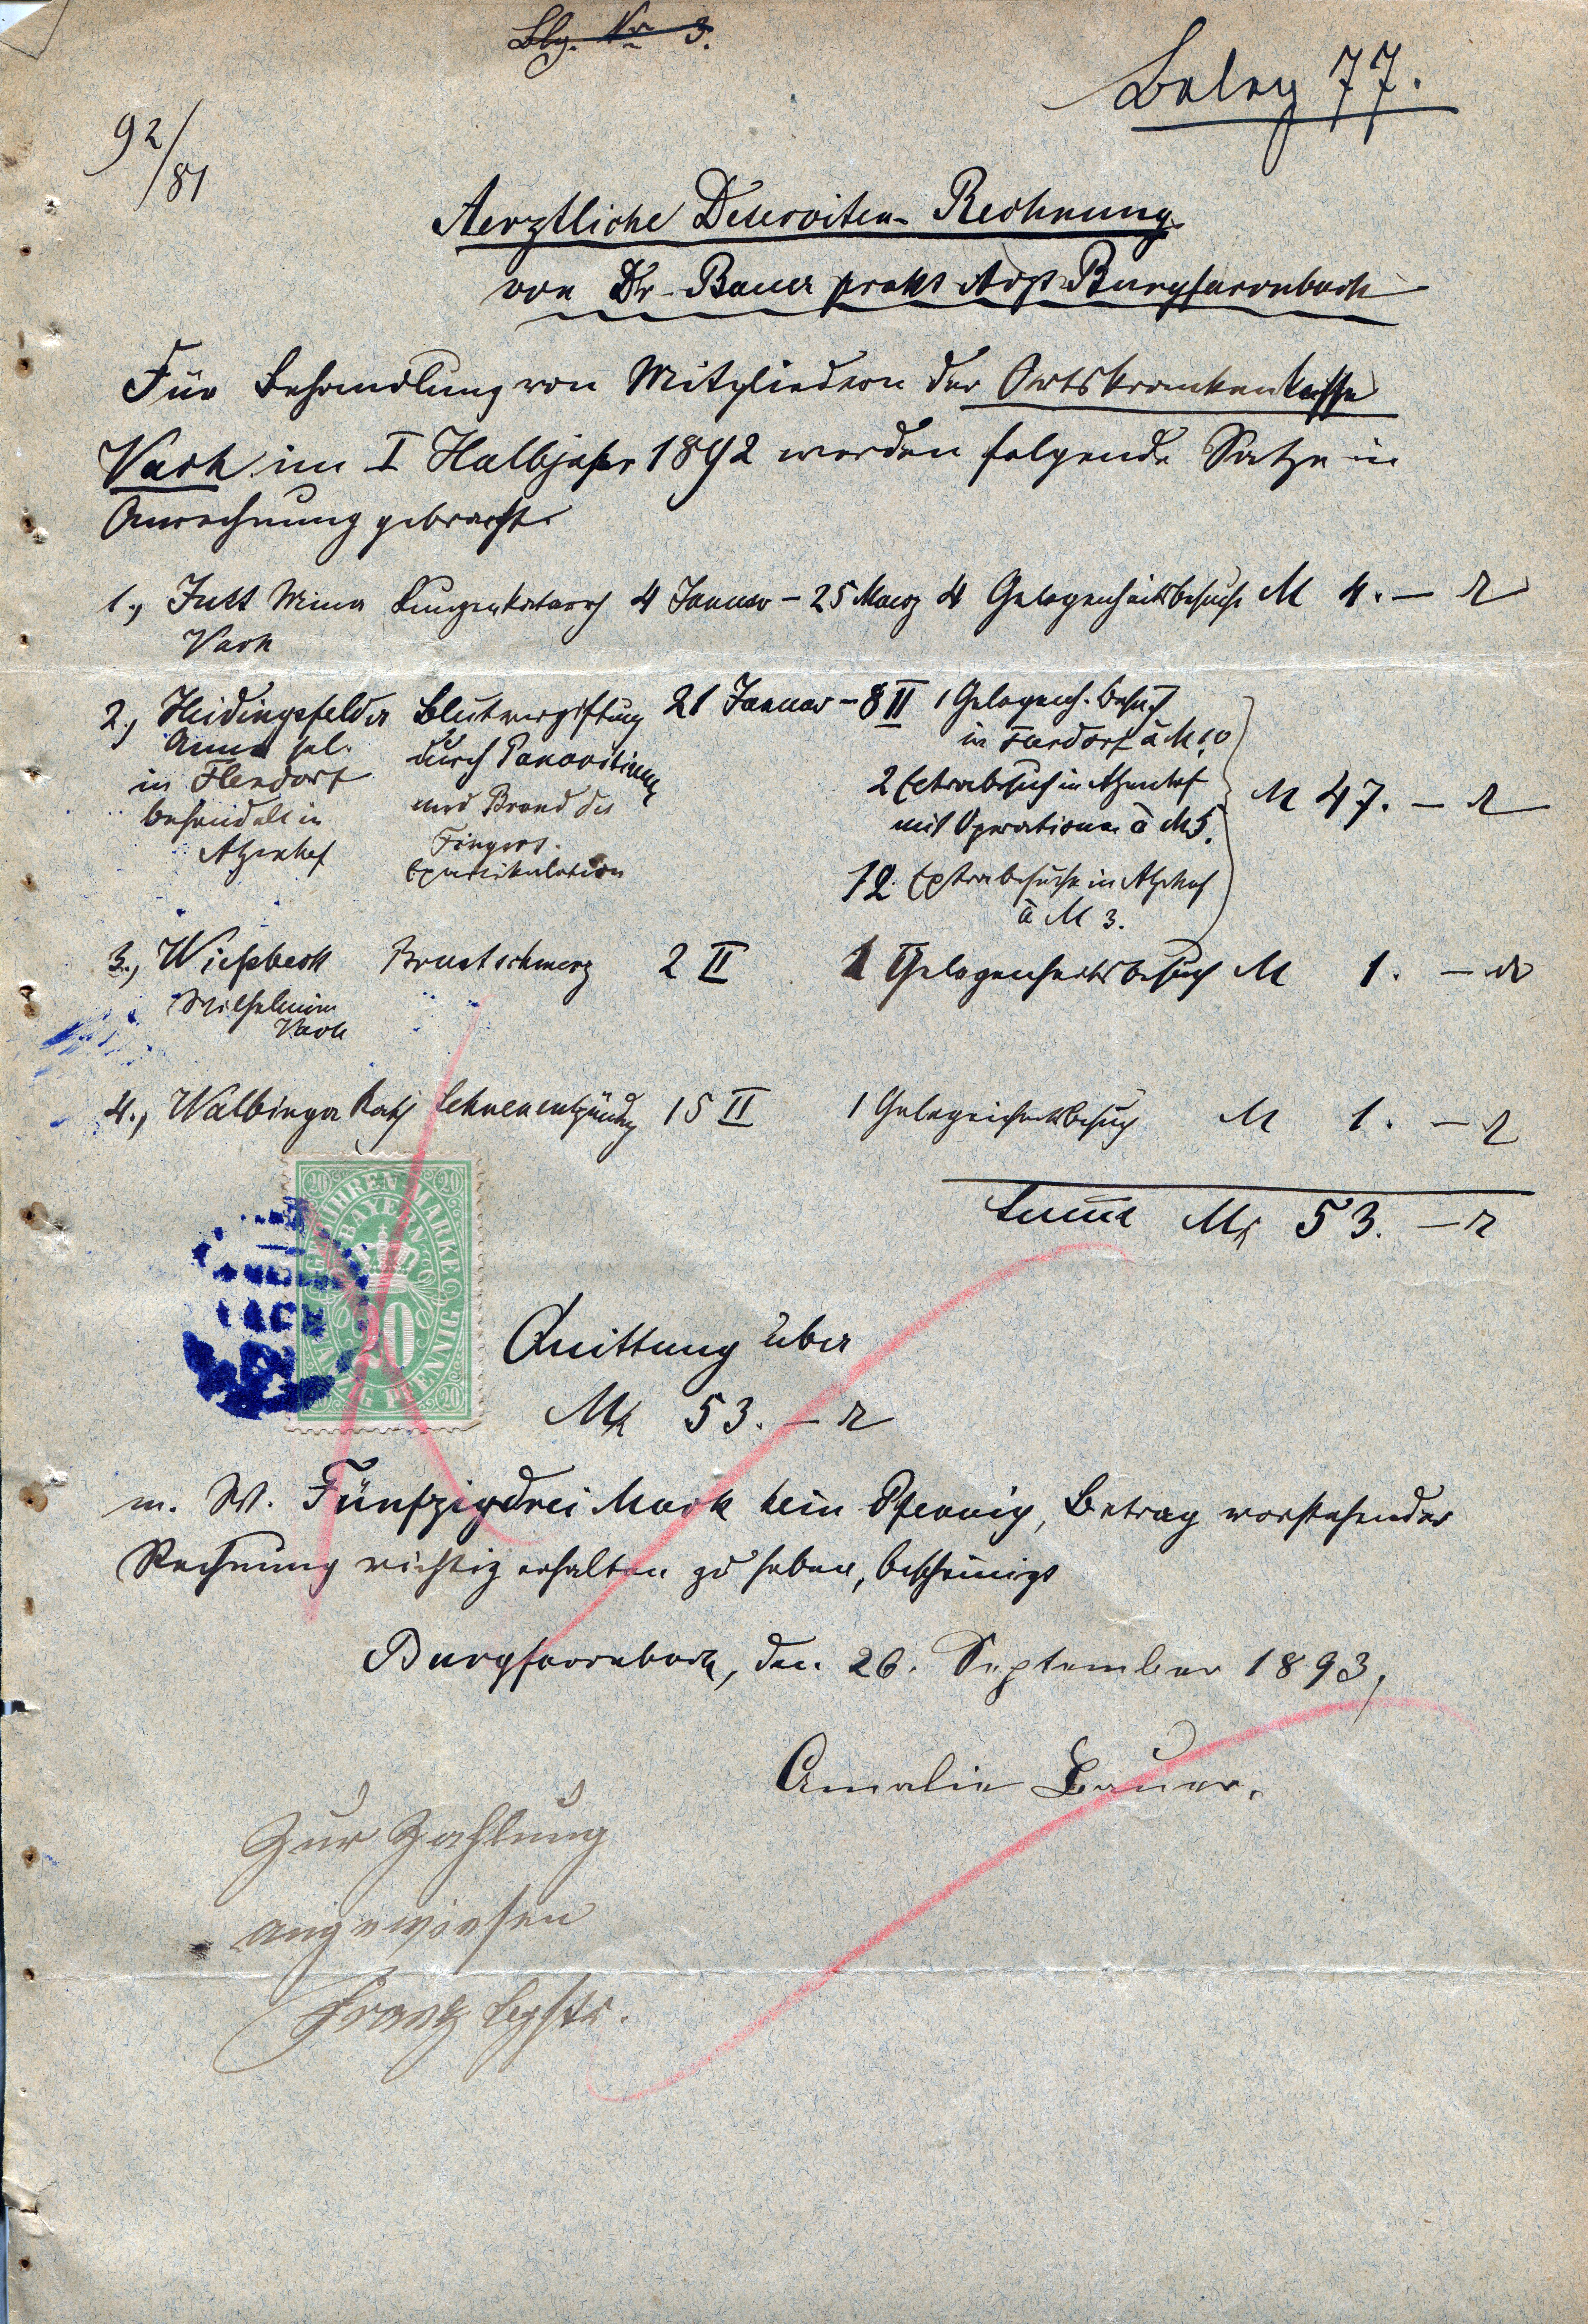 Blg. Nr 3.
Beleg 77.
92/81
Aerztliche Deserviten-Rechnung
von Dr. Bauer prakt Arzt Burgfarrnbach
Für Behandlung von Mitgliedern der Ortskrankenkasse
Vach im I Halbjahr 1892 werden folgende Sätze in
Anrechnung gebracht
1., Mina Lungenkatarrh 4 Januar – 25 Maerz 4 Gelegenheitsbesuche M 4. –
Vach
2., Heidingsfelder Blutvergiftung 21 Januar – 8 II 1 Gelegenh. Besuch
Anna led. durch Panaritium in Flexdorf à M 1.0
in Flexdorf und Brand des 2 Extrabesuch in Atzenhof
behandelt in Fingers. mit Operationen à M 5. M 47. –
Atzenhof Exartikulation 12 Extrabesuche in Atzenhof
à M 3.
3., Wießbeck Brustschmerz 2 II 1 Gelegenheitsbesuch M 1. –
Wilhelmine
Vach
4., Walbinger Sehnenentzündg 15 II 1 Gelegenheitsbesuch M 1. –
Summa Mk 53. –
GEBÜHREN MARKE
BAYERN
20
Quittung über
Mk 53. –
m. W. Fünfzigdrei Mark kein Pfennig, Betrag vorstehender
Rechnung richtig erhalten zu haben, bescheinigt
Burgfarrnbach, den 26. September 1893,
Amalie Bauer.
Zur Zahlung
angewiesen